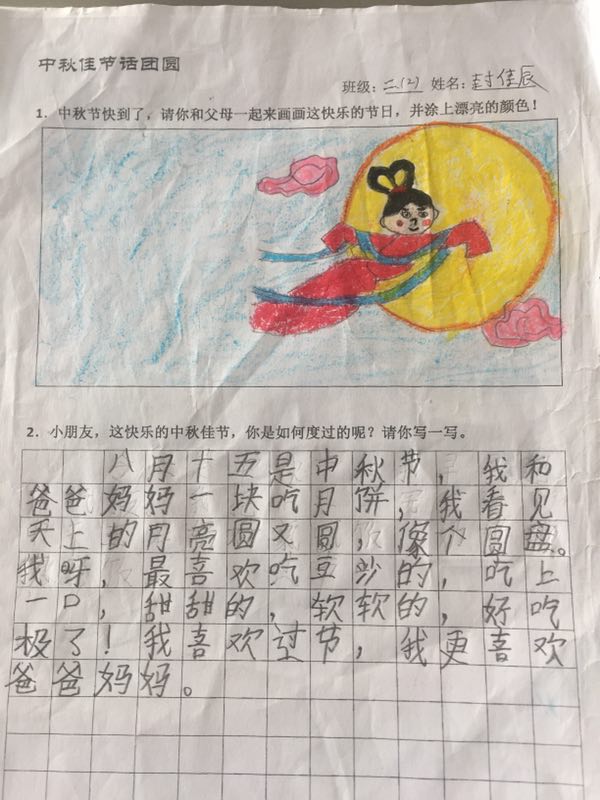 中秋佳节话团圆
班级：二(2) 姓名：封佳辰
1．中秋节快到了，请你和父母一起来画画这快乐的节日，并涂上漂亮的颜色！
2．小朋友，这快乐的中秋佳节，你是如何度过的呢？请你写一写。
八月十五是中秋节，我和
爸爸妈妈一块吃月饼，我看见
天上的月亮圆又圆，像个圆盘。
我呀，最喜欢吃豆沙的，吃上
一口，甜甜的，软软的，好吃
极了！我喜欢过节，我更喜欢
爸爸妈妈。